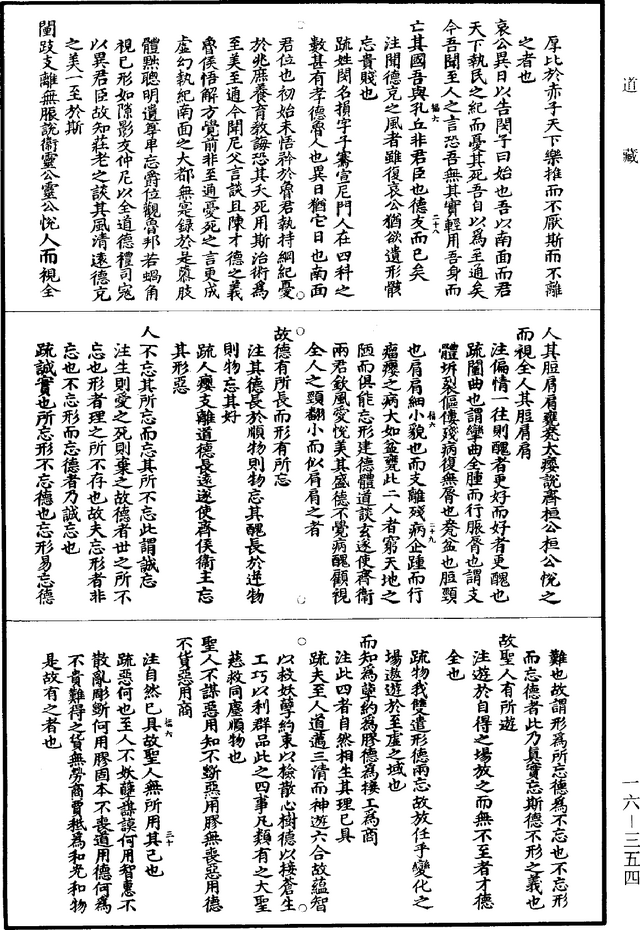 道藏
厚比於赤子天下樂推而不厭斯而不離
之者也
哀公異日以告閔子曰始也吾以南面而君
天下執民之紀而憂其死吾自以為至通矣
今吾聞至人之言恐吾無其實輕用吾身而
亡其國吾與孔丘非君臣也德友而已矣
注聞德充之風者雖復哀公猶欲遺形骸
忘貴賤也
疏姓閔名損字子騫宣尼門人在四科之
數甚有孝德魯人也異日猶它日也南面
君位也初始未悟矜於魯君執持綱紀憂
於兆庶養育教誨恐其夭死用斯治術為
至美至通今聞尼父言談且陳才德之義
魯侯悟解方覺前非至通憂死之言更成
虛幻執紀南面之大都無寔錄於是慕肢
體黜聰明遺尊卑忘爵位觀魯邦若蝸角
視己形如隙影友仲尼以全道德禮司寇
以異君臣故知莊老之談其風清遠德充
之美一至於斯
闉跂支離無脤說衛靈公靈公悅人而視全
人其脰肩肩甕㼜大癭說齊桓公桓公悅之
而視全人其脰肩肩
注偏情一往則醜者更好而好者更醜也
疏闉曲也謂攣曲企腫而行脤脣也謂支
體坼裂傴僂殘病復無脣也㼜盆也脰頸
也肩肩細小貌也而支離殘病企踵而行
癭瘤之病大如盆甕此二人者窮天地之
陋而俱能忘形建德體道談玄遂使齊衛
兩君欽風愛悅美其盛德不覺病醜顧視
全人之頸翻小而似肩肩之者
故德有所長而形有所忘
注其德長於順物則物忘其醜長於逆物
則物忘其好
疏人癭支離道德長遠遂使齊侯衛主忘
其形惡
人不忘其所忘而忘其所不忘此謂誠忘
注生則愛之死則棄之故德者世之所不
忘也形者理之所不存也故夫忘形者非
忘也不忘形而忘德者乃誠忘也
疏誠實也所忘形不忘德也忘形易忘德
難也故謂形為所忘德為不忘也不忘形
而忘德者此乃真實忘斯德不形之義也
故聖人有所遊
注遊於自得之場放之而無不至者才德
全也
疏物我雙遣形德兩忘故放任乎變化之
場遨遊於至虛之域也
而知為孽約為膠德為接工為商
注此四者自然相生其理已具
疏夫至人道邁三清而神遊六合故蘊智
以救妖孽約束以檢散心樹德以接蒼生
工巧以利群品此之四事凡類有之大聖
慈救同塵順物也
聖人不謀惡用知不斷惡用膠無喪惡用德
不貨惡用商
注自然已具故聖人無所用其己也
疏惡何也至人不妖孽謀謨何用智惠不
散亂彫斷何用膠固本不喪道用德何為
不貴難得之貨無勞商賈秪為和光和物
是故有之者也
一六—三五四